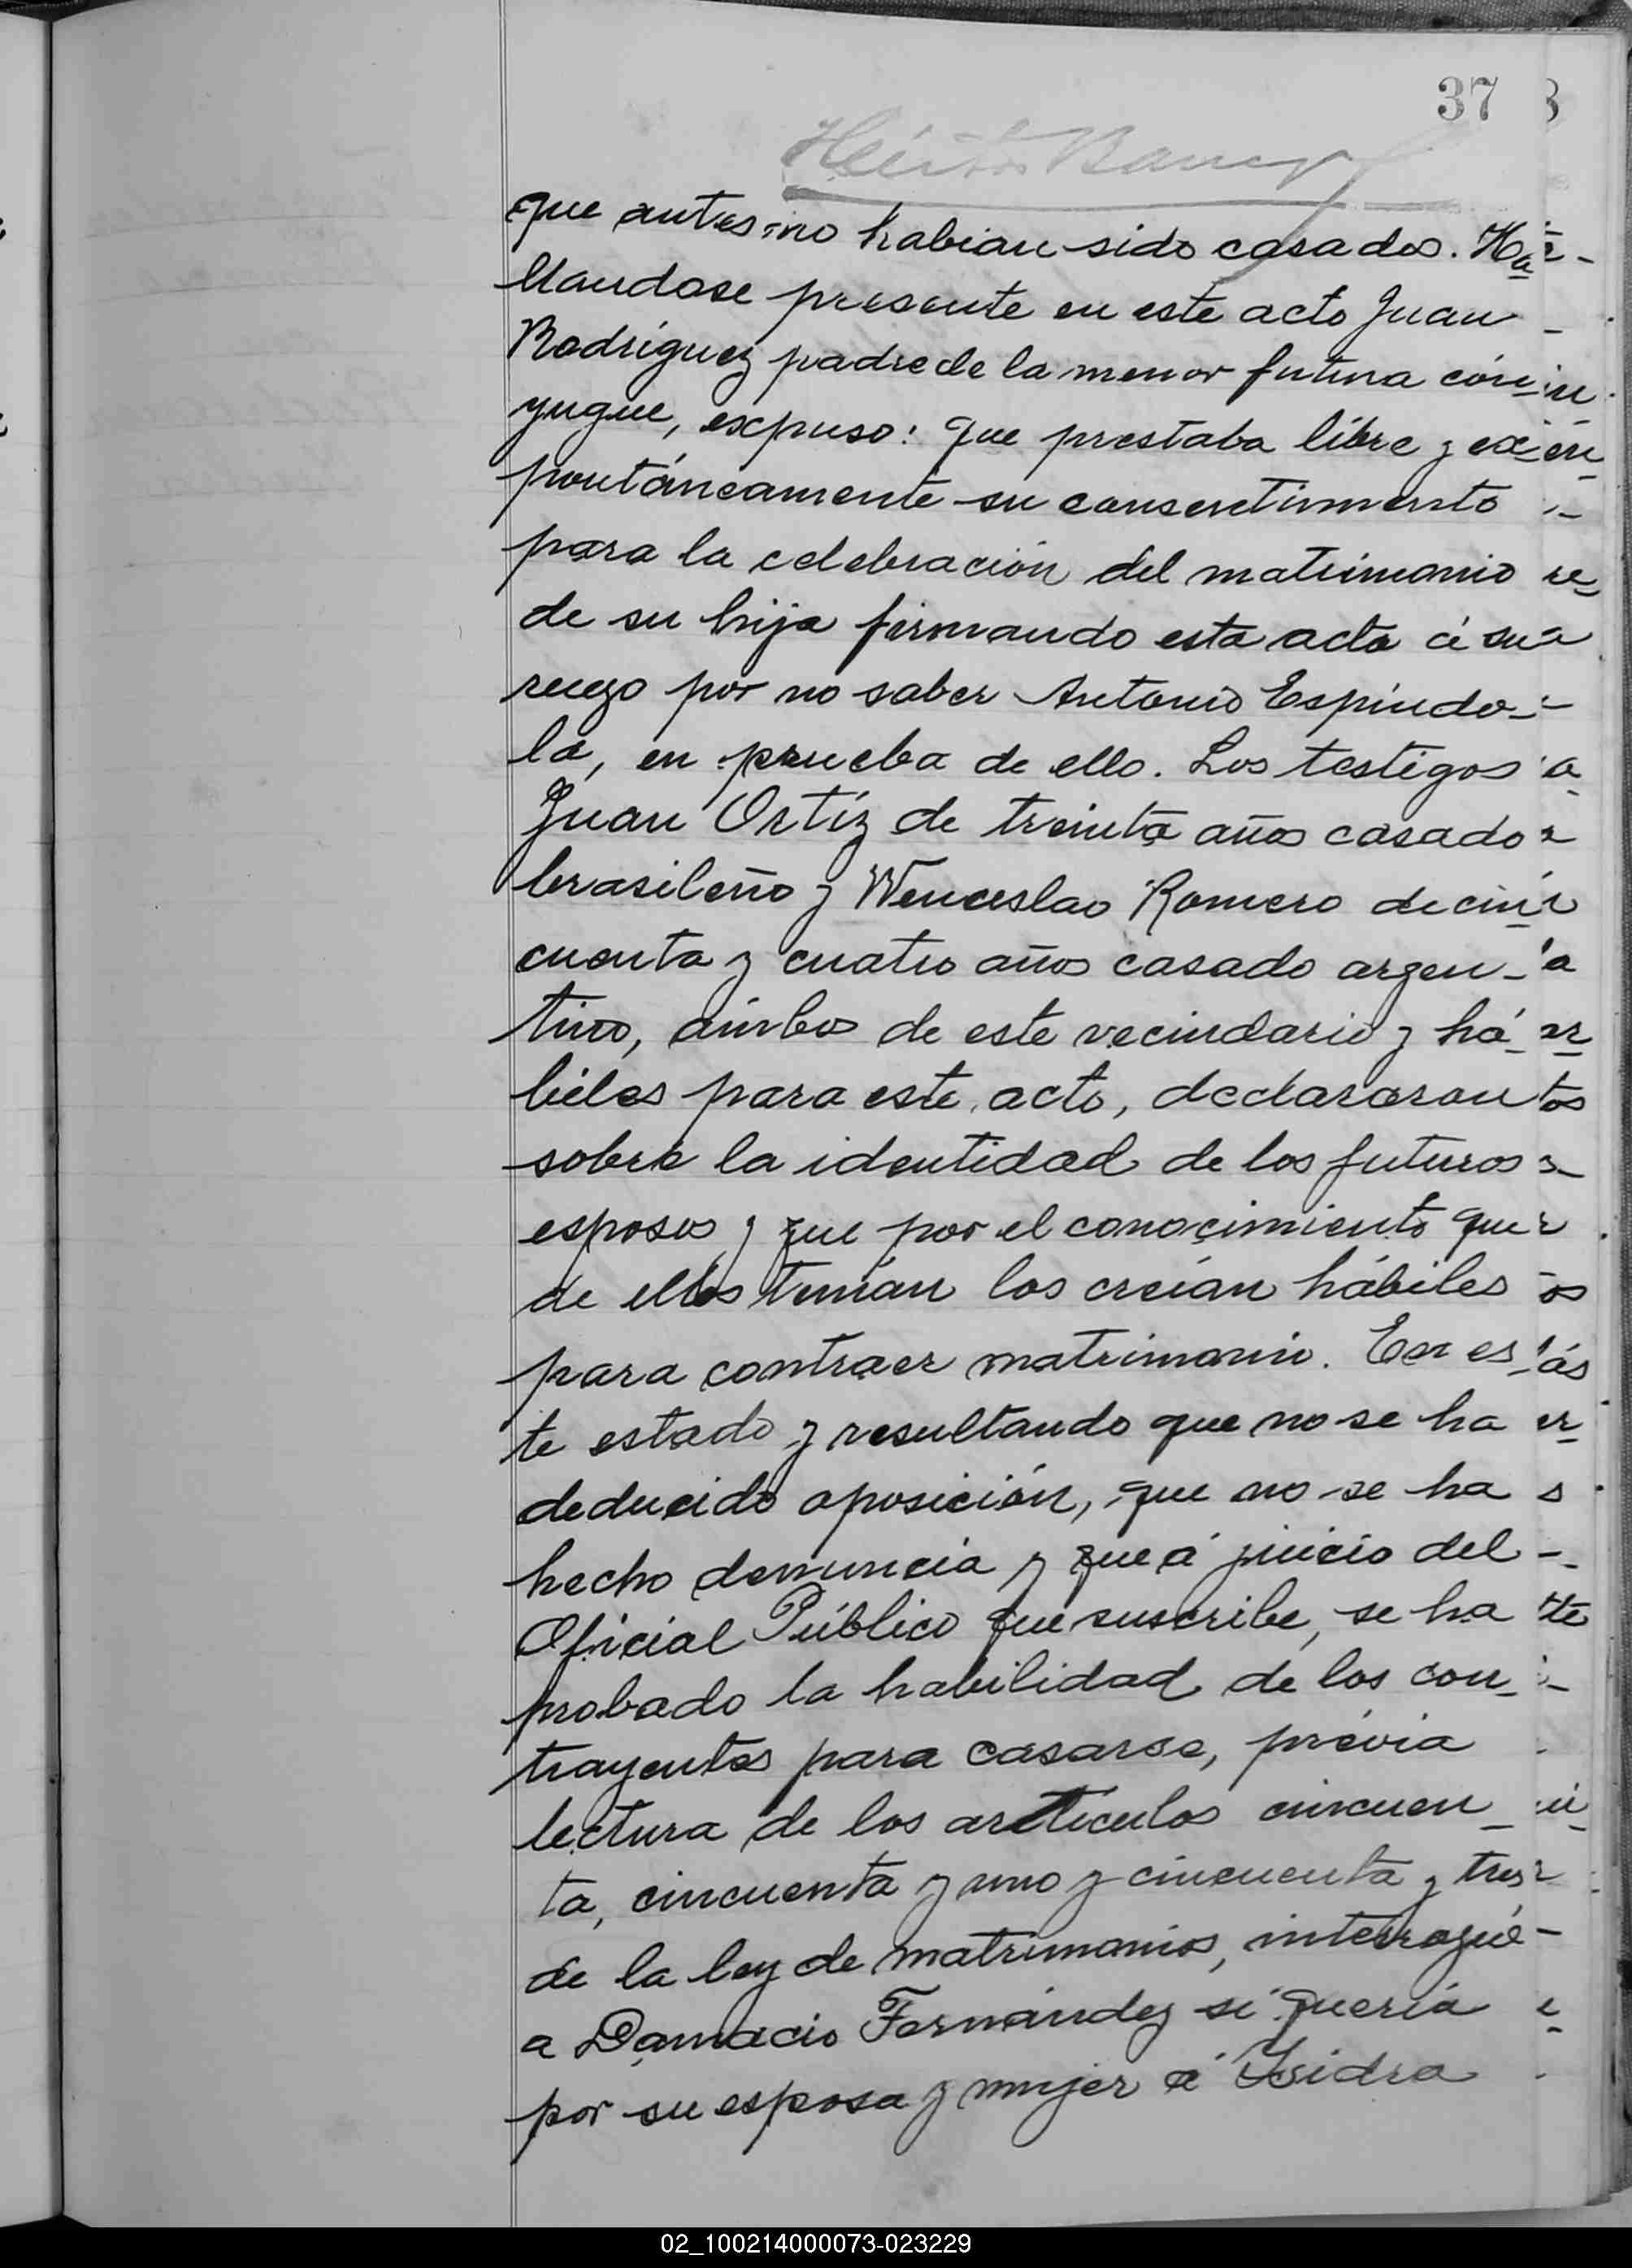 37
que antes no habian sido casados. Ha
llandose presente en este acto Juan
Rodríguez padre de la menor futura cón
yugue, expuso: que prestaba libre y es
pontáneamente su consentimento
para la celebración del matrimonio
de su hija firmando esta acta á su
ruego por no saber Antonio Espíndo-
la, en prueba de ello. Los testigos
Juan Ortíz de treinta años casado
brasileño y Wenceslao Romero de cin
cuenta y cuatro años casado argen-
tino, ámbos de este vecindario y há-
biles para este acto, declararon
sobre la identidad de los futuros
esposos y que por el conocimiento que
de ellos tenían los creían hábiles
para contraer matrimonio. En es-
te estado y resultando que no se ha
deducido oposición, que no se ha
hecho denuncia y que á juicio del
Oficial Público que suscribe, se ha
probado la habilidad de los con-
trayentes para casarse, prévia
lectura de los artículos cincuen-
ta, cincuenta y uno y cincuenta y tres
de la ley de matrimonios, interrogué
a Damacio Fernández si quería
por su esposa y mujer á Ysidra
02_100214000073-023229